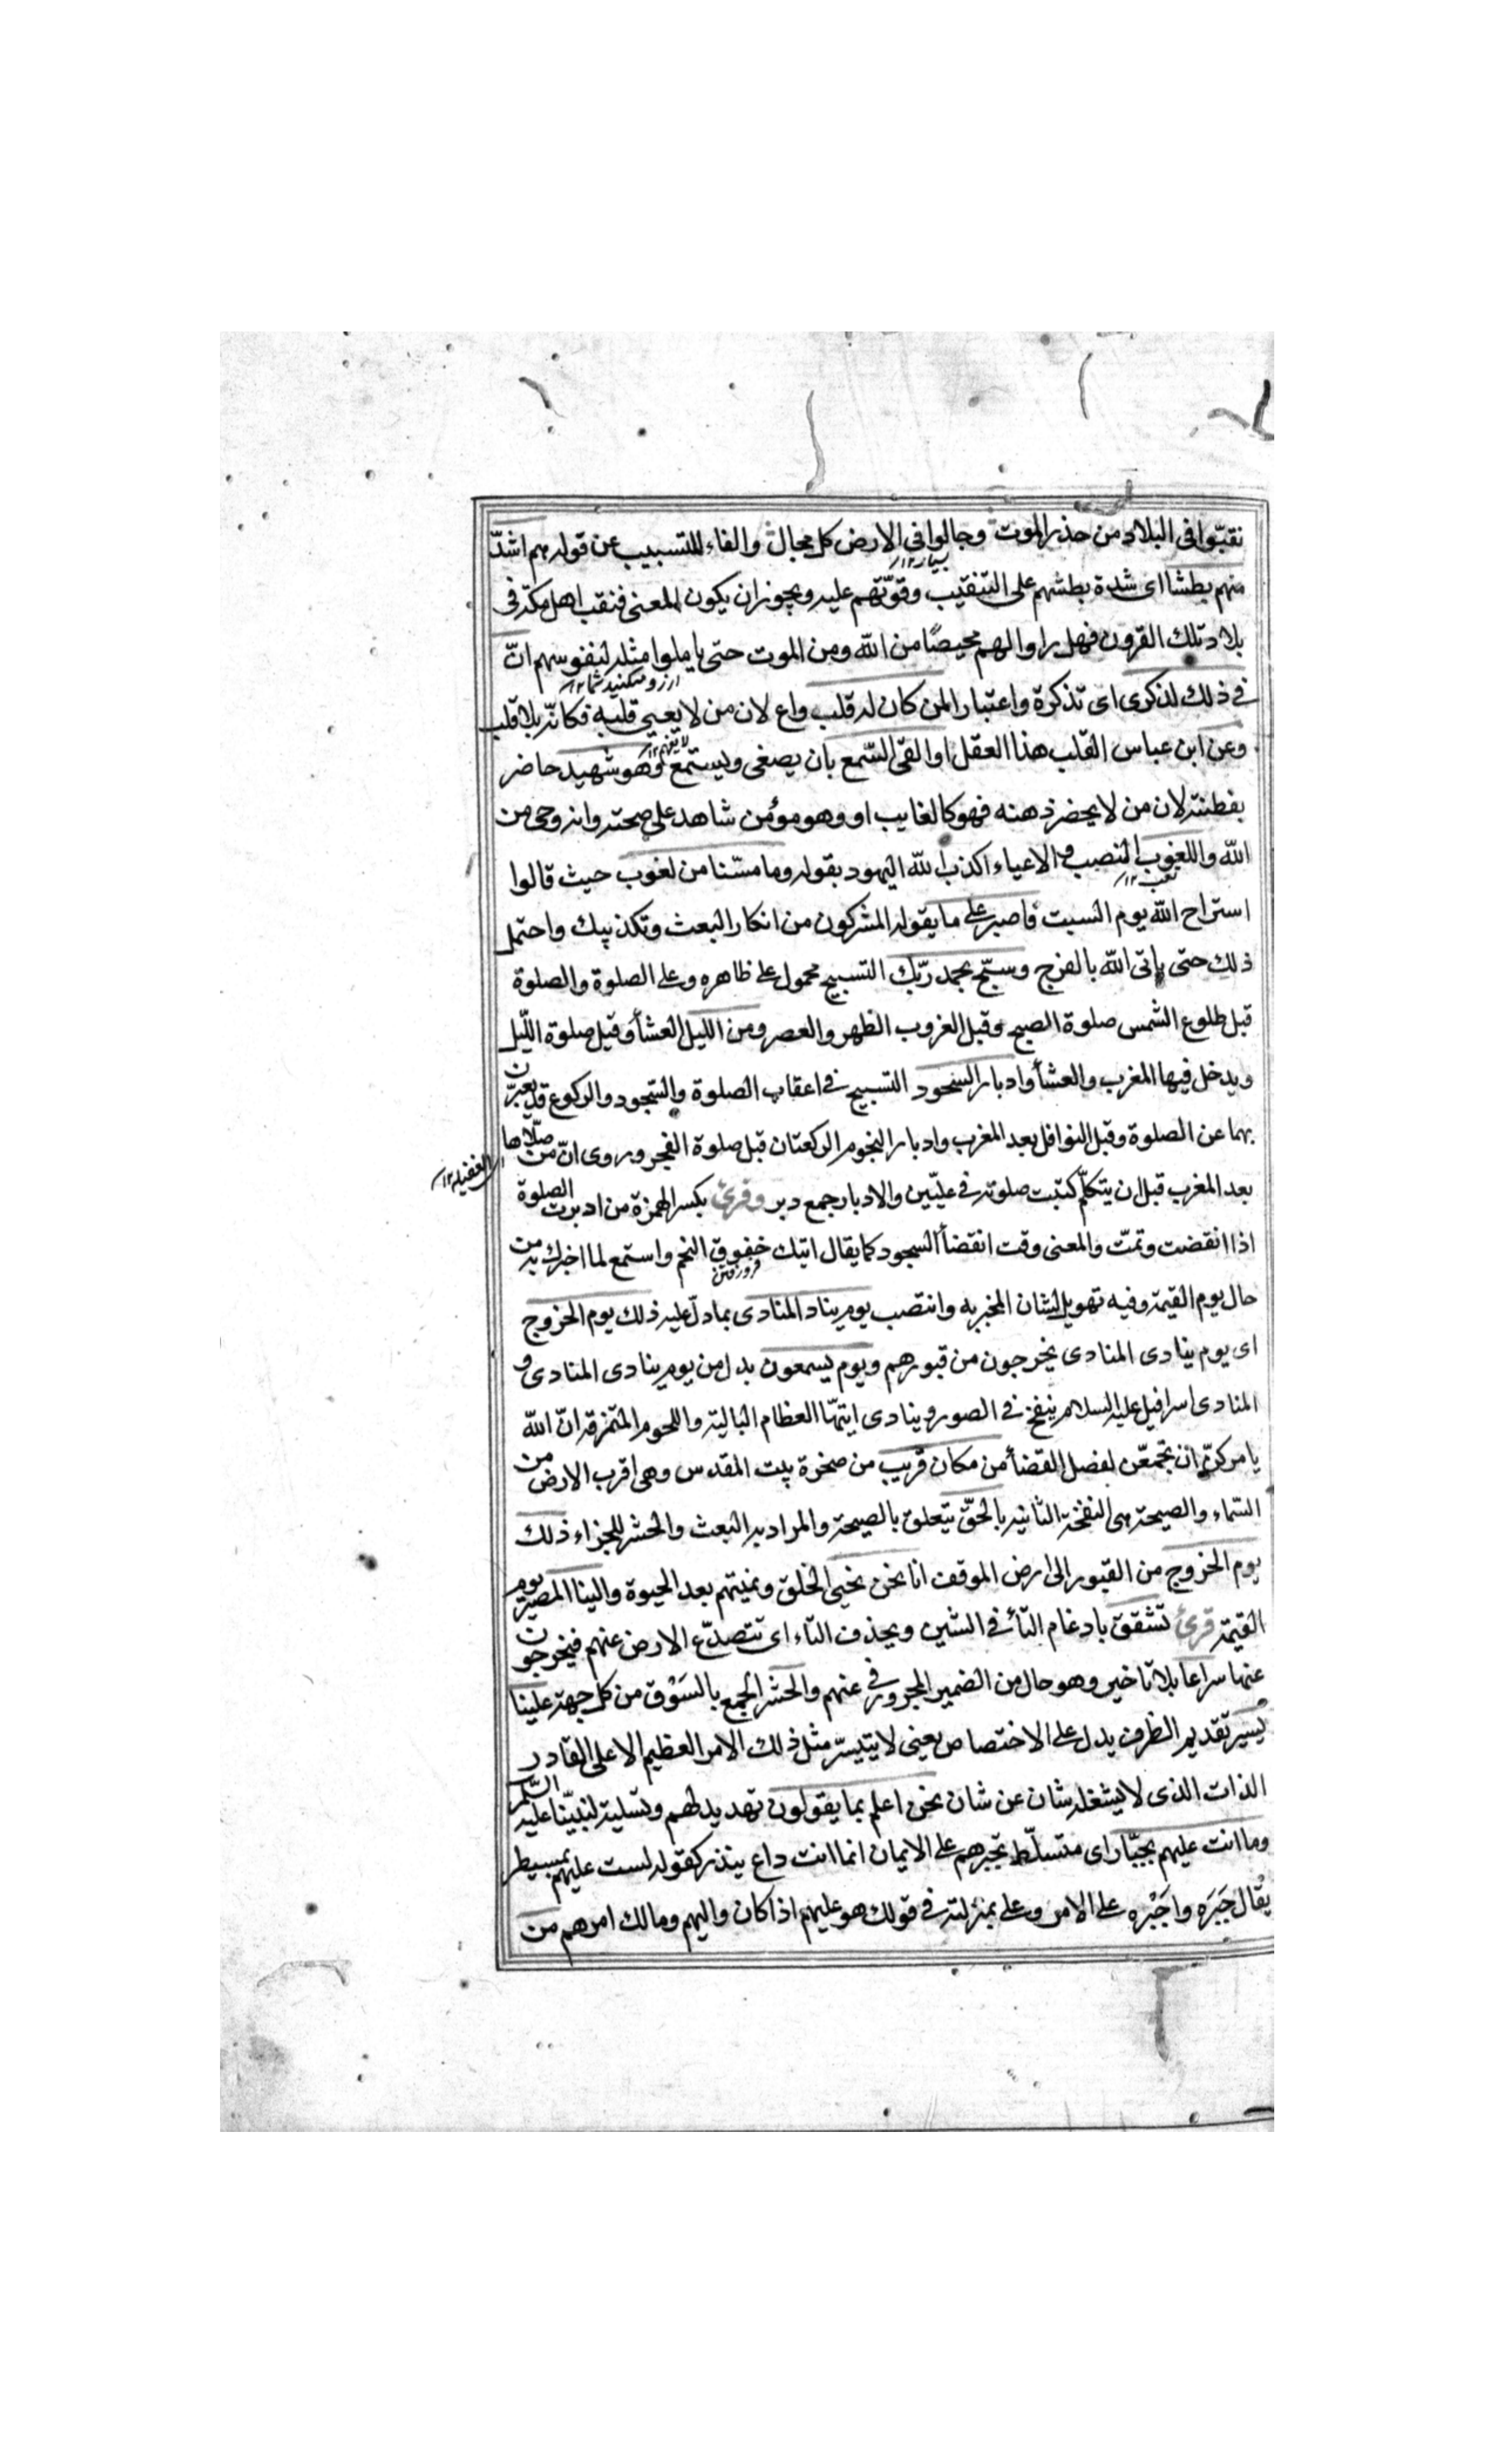 نقبّوا فى البلاد من حذر الموت وجالوا فى الارض كل مجال والفاء للتسبيب عن قوله هم اشدّ
منهم بطشا اى شدة بطشهم على التنقيب وقوّتهم عليه ويجوز ان يكون المعنى فنقب اهل مكة فى
بلاد تلك القرون فهل راوا لهم محيصًا من الله ومن الموت حتى ياملوا مثله لنفوسهم انّ
فى ذلك لذكرى اى تذكرة واعتبارا لمن كان له قلب واع لان من لا يعى قلبه فكانّه بلا قلب
وعن ابن عباس القلب هذا العقل او القى السّمع بان يصغى ويستمع وهو شهيد حاضر
بفطنته لان من لا يحضر ذهنه فهو كالغايب او وهو مؤمن شاهد على صحته وانه وحى من
الله واللغوب النصب والاعياء اكذب الله اليهود بقوله وما مسّنا من لغوب حيث قالوا
تعب ١٢
استراح الله يوم السبت فاصبر على ما يقوله المشركون من انكار البعث وتكذيبك واحتمل
ذلك حتى ياتى الله بالفرج وسبّح بحمد ربّك التسبيح محمول على ظاهره وعلى الصلوة والصلوة
قبل طلوع الشمس صلوة الصبح وقبل الغروب الظهر والعصر ومن الليل العشأ وقيل صلوة اللّيل
ويدخل فيها المغرب والعشأ وادبار السجود التسبيح فى اعقاب الصلوة والسّجود والركوع قد يعبّران
بهما عن الصلوة وقيل النوافل بعد المغرب وادبار النجوم الركعتان قبل صلوة الفجر وروى انّ من صلّاها
بعد المغرب قبل ان يتكلّم كتبت صلوته فى علّيّين والادبار جمع دبر وقرئ بكسر الهمزة من ادبرت الصلوة
اذا انقضت وتمتّ والمعنى وقت انقضأ السجود كما يقال اتيك خفوق النجم واستمع لما اخبرك به من
حال يوم القيمة وفيه تهويل لشان المخبر به وانتصب يوم يناد المنادى بما دلّ عليه ذلك يوم الخروج
اى يوم ينادى المنادى يخرجون من قبورهم ويوم يسمعون بدل من يوم ينادى المنادى و
المنادى اسرافيل عليه السلام ينفخ فى الصور وينادى ايتهّا العظام البالية واللحوم المتمزقة انّ الله
يامركنّ ان تجتمعّن لفصل القضأ من مكان قريب من صخرة بيت المقدس وهى اقرب الارض من
السّماء والصيحة هى النفخة الثانيه بالحقّ يتعلق بالصيحة والمراد به البعث والحشر للجزاء ذلك
يوم الخروج من القبور الى ارض الموقف انا نحن نحيى الخلق ونميتهم بعد الحيوة والينا المصير يوم
القيمة قرئ تشقق بادغام التأ فى الشين وبحذف التاء اى تتصدّع الارض عنهم فيخرجون
عنها سراعا بلا تاخير وهو حال من الضمير المجرور فى عنهم والحشر الجمع بالسَوْق من كل جهة علينا
يسير تقديم الظرف يدل على الاختصاص يعنى لا يتيسّر مثل ذلك الامر العظيم الا على القادر
الذات الذى لا يشغله شان عن شان نحن اعلم بما يقولون تهديد لهم وتسلية لنبيّنا عليه السّلم
وما انت عليهم بجبّار اى متسلّط تجبرهم على الايمان انما انت داع ينذر كقوله لست عليهم بمسيطر
يقال جَبَرَه واجْبَره على الامر وعلى بمنزلته فى قولك هو عليهم اذا كان واليهم ومالك امرهم من